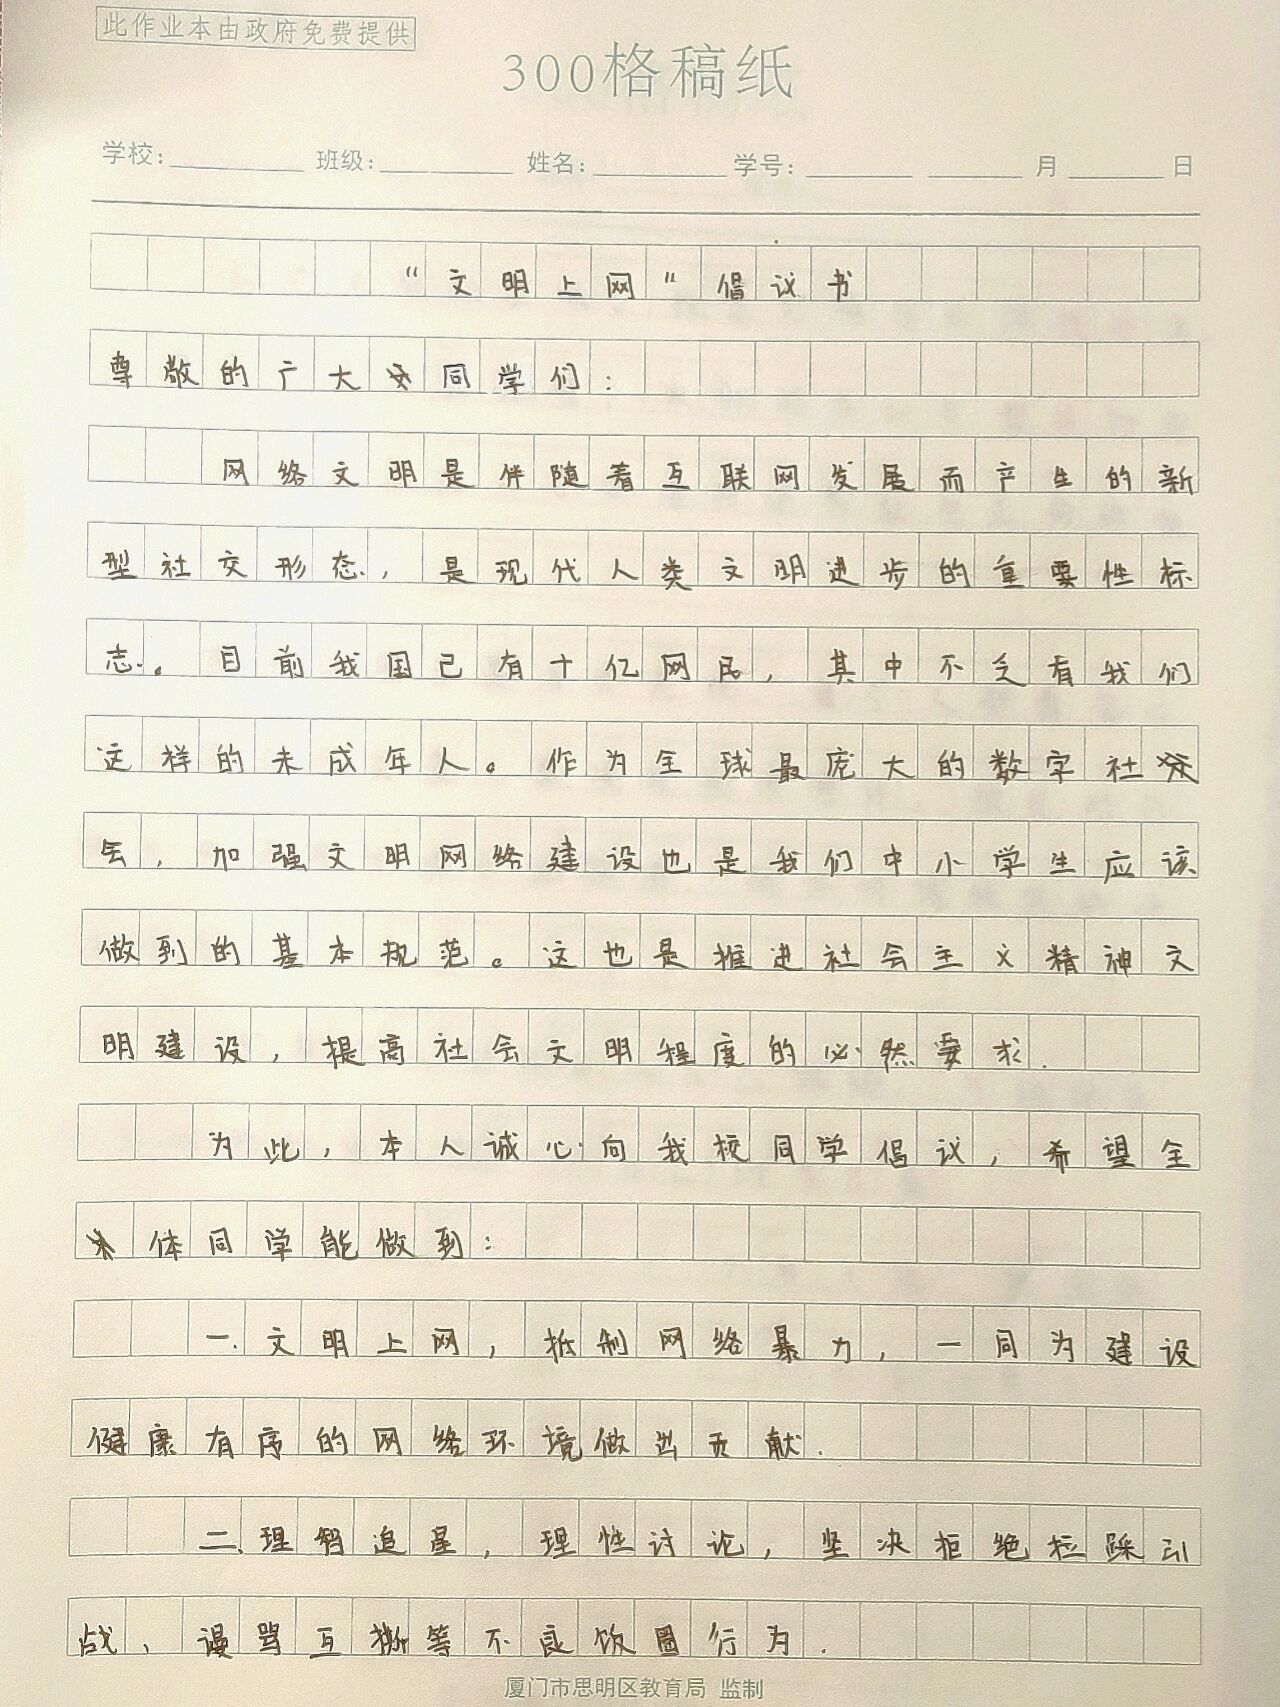 此作业本由政府免费提供
300格稿纸
学校: 班级: 姓名: 学号: 月 日
“文明上网”倡议书
尊敬的广大同学们：
网络文明是伴随着互联网发展而产生的新
型社交形态，是现代人类文明进步的重要性标
志。目前我国已有十亿网民，其中不乏有我们
这样的未成年人。作为全球最庞大的数字社
会，加强文明网络建设也是我们中小学生应该
做到的基本规范。这也是推进社会主义精神文
明建设，提高社会文明程度的必然要求.
为此，本人诚心向我校同学倡议，希望全
体同学能做到：
一.文明上网，抵制网络暴力，一同为建设
健康有序的网络环境做出贡献.
二.理智追星，理性讨论，坚决拒绝拉踩引
战、谩骂互撕等不良饭圈行为.
厦门市思明区教育局 监制